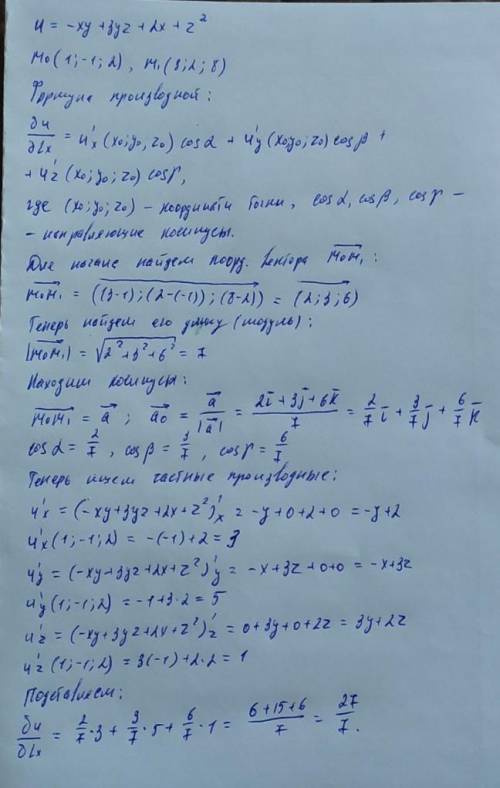 u = -xy + 3yz + 2x + z²
M₀(1;-1;2), M₁(3;2;8)
Формула производной:
∂u/∂lx = u'x (x₀;y₀;z₀) cosα + u'y (x₀;y₀;z₀) cosβ +
+ u'z (x₀;y₀;z₀) cosγ,
где (x₀;y₀;z₀) - координаты точки, cosα, cosβ, cosγ -
- направляющие косинусы.
Для начала найдем коорд. вектора M₀M₁:
M₀M₁ = ((3-1);(2-(-1));(8-2)) = (2;3;6)
Теперь найдем его длину (модуль):
|M₀M₁| = √2²+3²+6² = 7
Находим косинусы:
M₀M₁ = a; a₀ = a/|a| = 2i+3j+6k/7 = 2/7 i + 3/7 j + 6/7 k
cosα = 2/7, cosβ = 3/7, cosγ = 6/7
Теперь ищем частные производные:
u'x = (-xy+3yz+2x+z²)'x = -y+0+2+0 = -y+2
u'x (1;-1;2) = -(-1)+2 = 3
u'y = (-xy+3yz+2x+z²)'y = -x+3z+0+0 = -x+3z
u'y (1;-1;2) = -1+3·2 = 5
u'z = (-xy+3yz+2x+z²)'z = 0+3y+0+2z = 3y+2z
u'z (1;-1;2) = 3(-1)+2·2 = 1
Подставляем:
∂u/∂lx = 2/7·3 + 3/7·5 + 6/7·1 = 6+15+6/7 = 27/7.